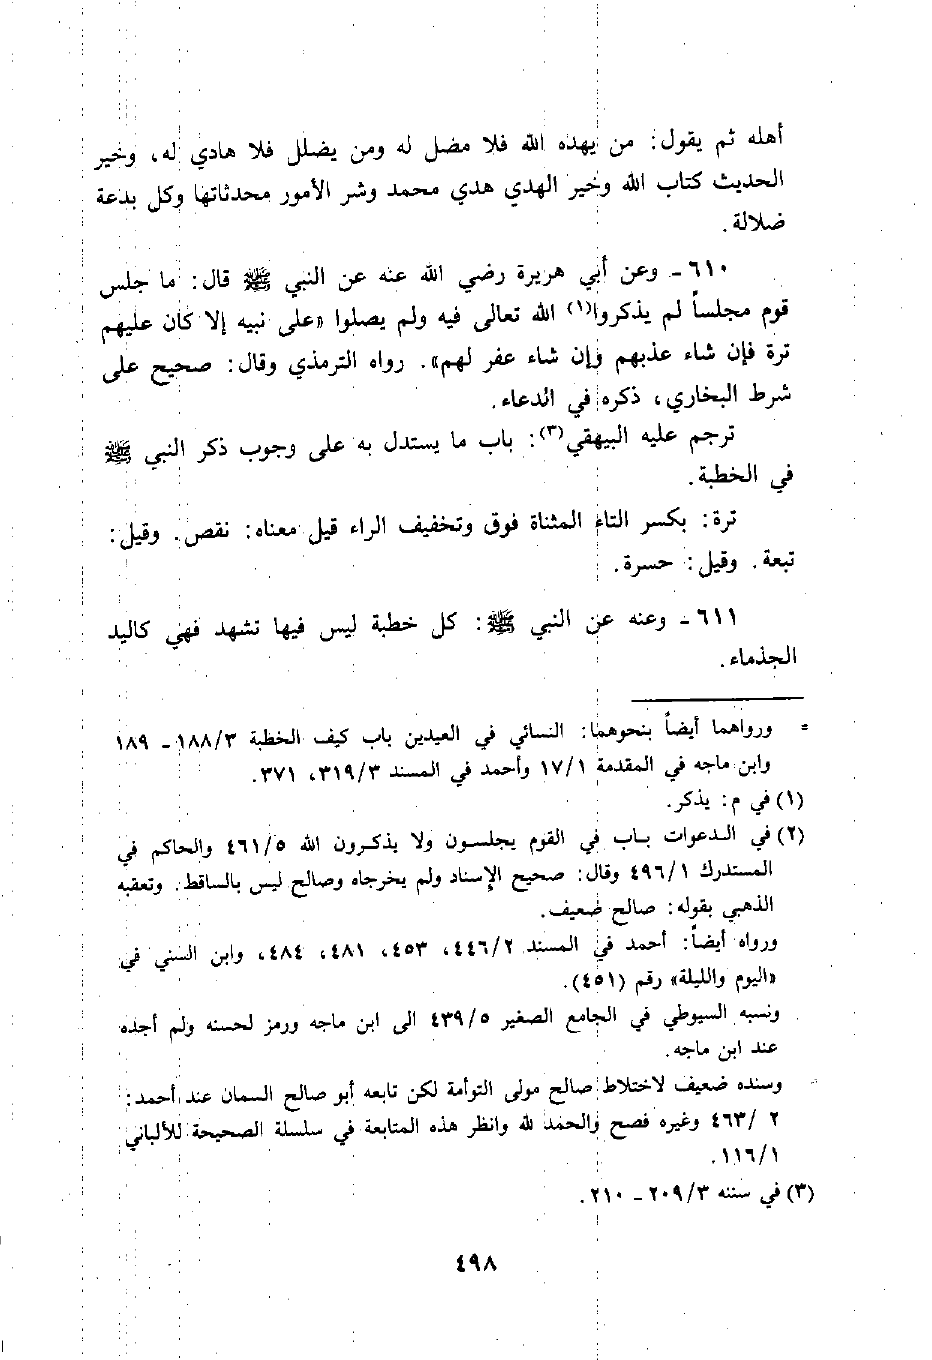 أهله ثم يقول: من يهده الله فلا مضل له ومن يضلل فلا هادي له، وخير
الحديث كتاب الله وخير الهدي هدي محمد وشر الأمور محدثاتها وكل بدعة
ضلالة.
٦١٠ - وعن أبي هريرة رضي الله عنه عن النبي ﷺ قال: ما جلس
قوم مجلساً لم يذكروا(١) الله تعالى فيه ولم يصلوا «على نبيه إلا كان عليهم
ترة فإن شاء عذبهم وإن شاء عفر لهم». رواه الترمذي وقال: صحيح على
شرط البخاري، ذكره في الدعاء.
ترجم عليه البيهقي(٣): باب ما يستدل به على وجوب ذكر النبي ﷺ
في الخطبة.
ترة: بكسر التاء المثناة فوق وتخفيف الراء قيل معناه: نقص. وقيل:
تبعة. وقيل: حسرة.
٦١١ - وعنه عن النبي ﷺ: كل خطبة ليس فيها تشهد فهي كاليد
الجذماء.
= ورواهما أيضاً بنحوهما: النسائي في العيدين باب كيف الخطبة ١٨٨/٣ - ١٨٩
وابن ماجه في المقدمة ١٧/١ وأحمد في المسند ٣١٩/٣، ٣٧١.
(١) في م: يذكر.
(٢) في الدعوات باب في القوم يجلسون ولا يذكرون الله ٤٦١/٥ والحاكم في
المستدرك ٤٩٦/١ وقال: صحيح الإسناد ولم يخرجاه وصالح ليس بالساقط. وتعقبه
الذهبي بقوله: صالح ضعيف.
ورواه أيضاً: أحمد في المسند ٤٤٦/٢، ٤٥٣، ٤٨١، ٤٨٤، وابن السني في
«اليوم والليلة» رقم (٤٥١).
ونسبه السيوطي في الجامع الصغير ٤٣٩/٥ الى ابن ماجه ورمز لحسنه ولم أجده
عند ابن ماجه.
وسنده ضعيف لاختلاط صالح مولى التوأمة لكن تابعه أبو صالح السمان عند أحمد:
٢ /٤٦٣ وغيره فصح والحمد لله وانظر هذه المتابعة في سلسلة الصحيحة للألباني
١١٦/١.
(٣) في سننه ٢٠٩/٣ - ٢١٠.
٤٩٨